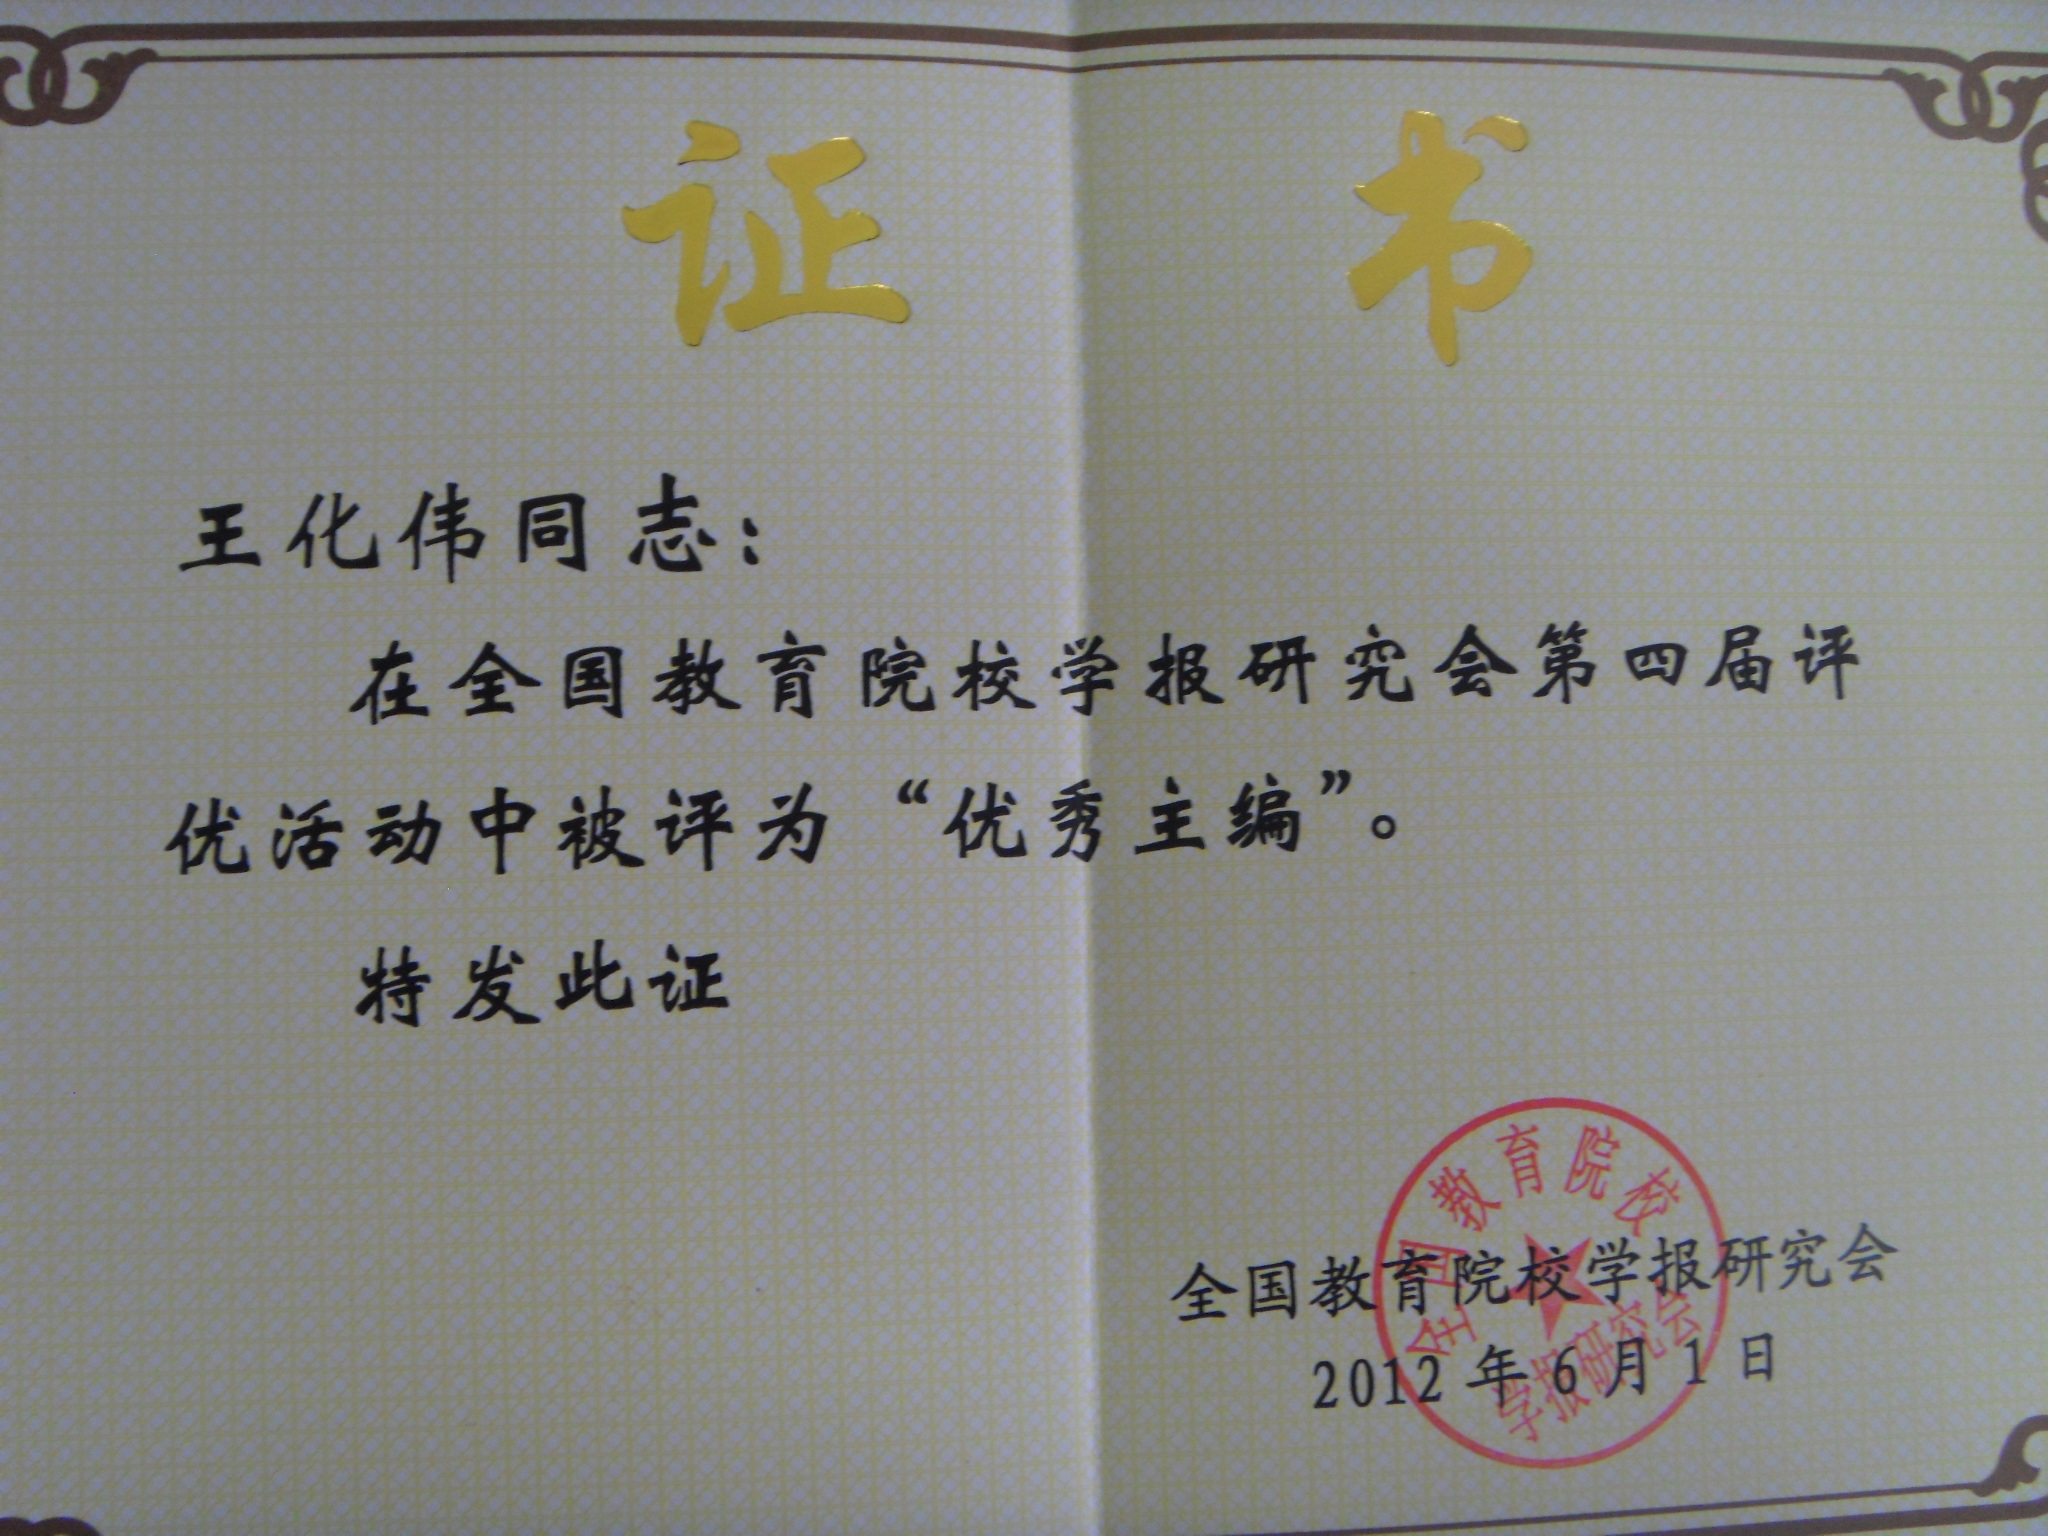 证书
王化伟同志：
在全国教育院校学报研究会第四届评
优活动中被评为“优秀主编”。
特发此证
全国教育院校
学报研究会
全国教育院校学报研究会
2012年6月1日